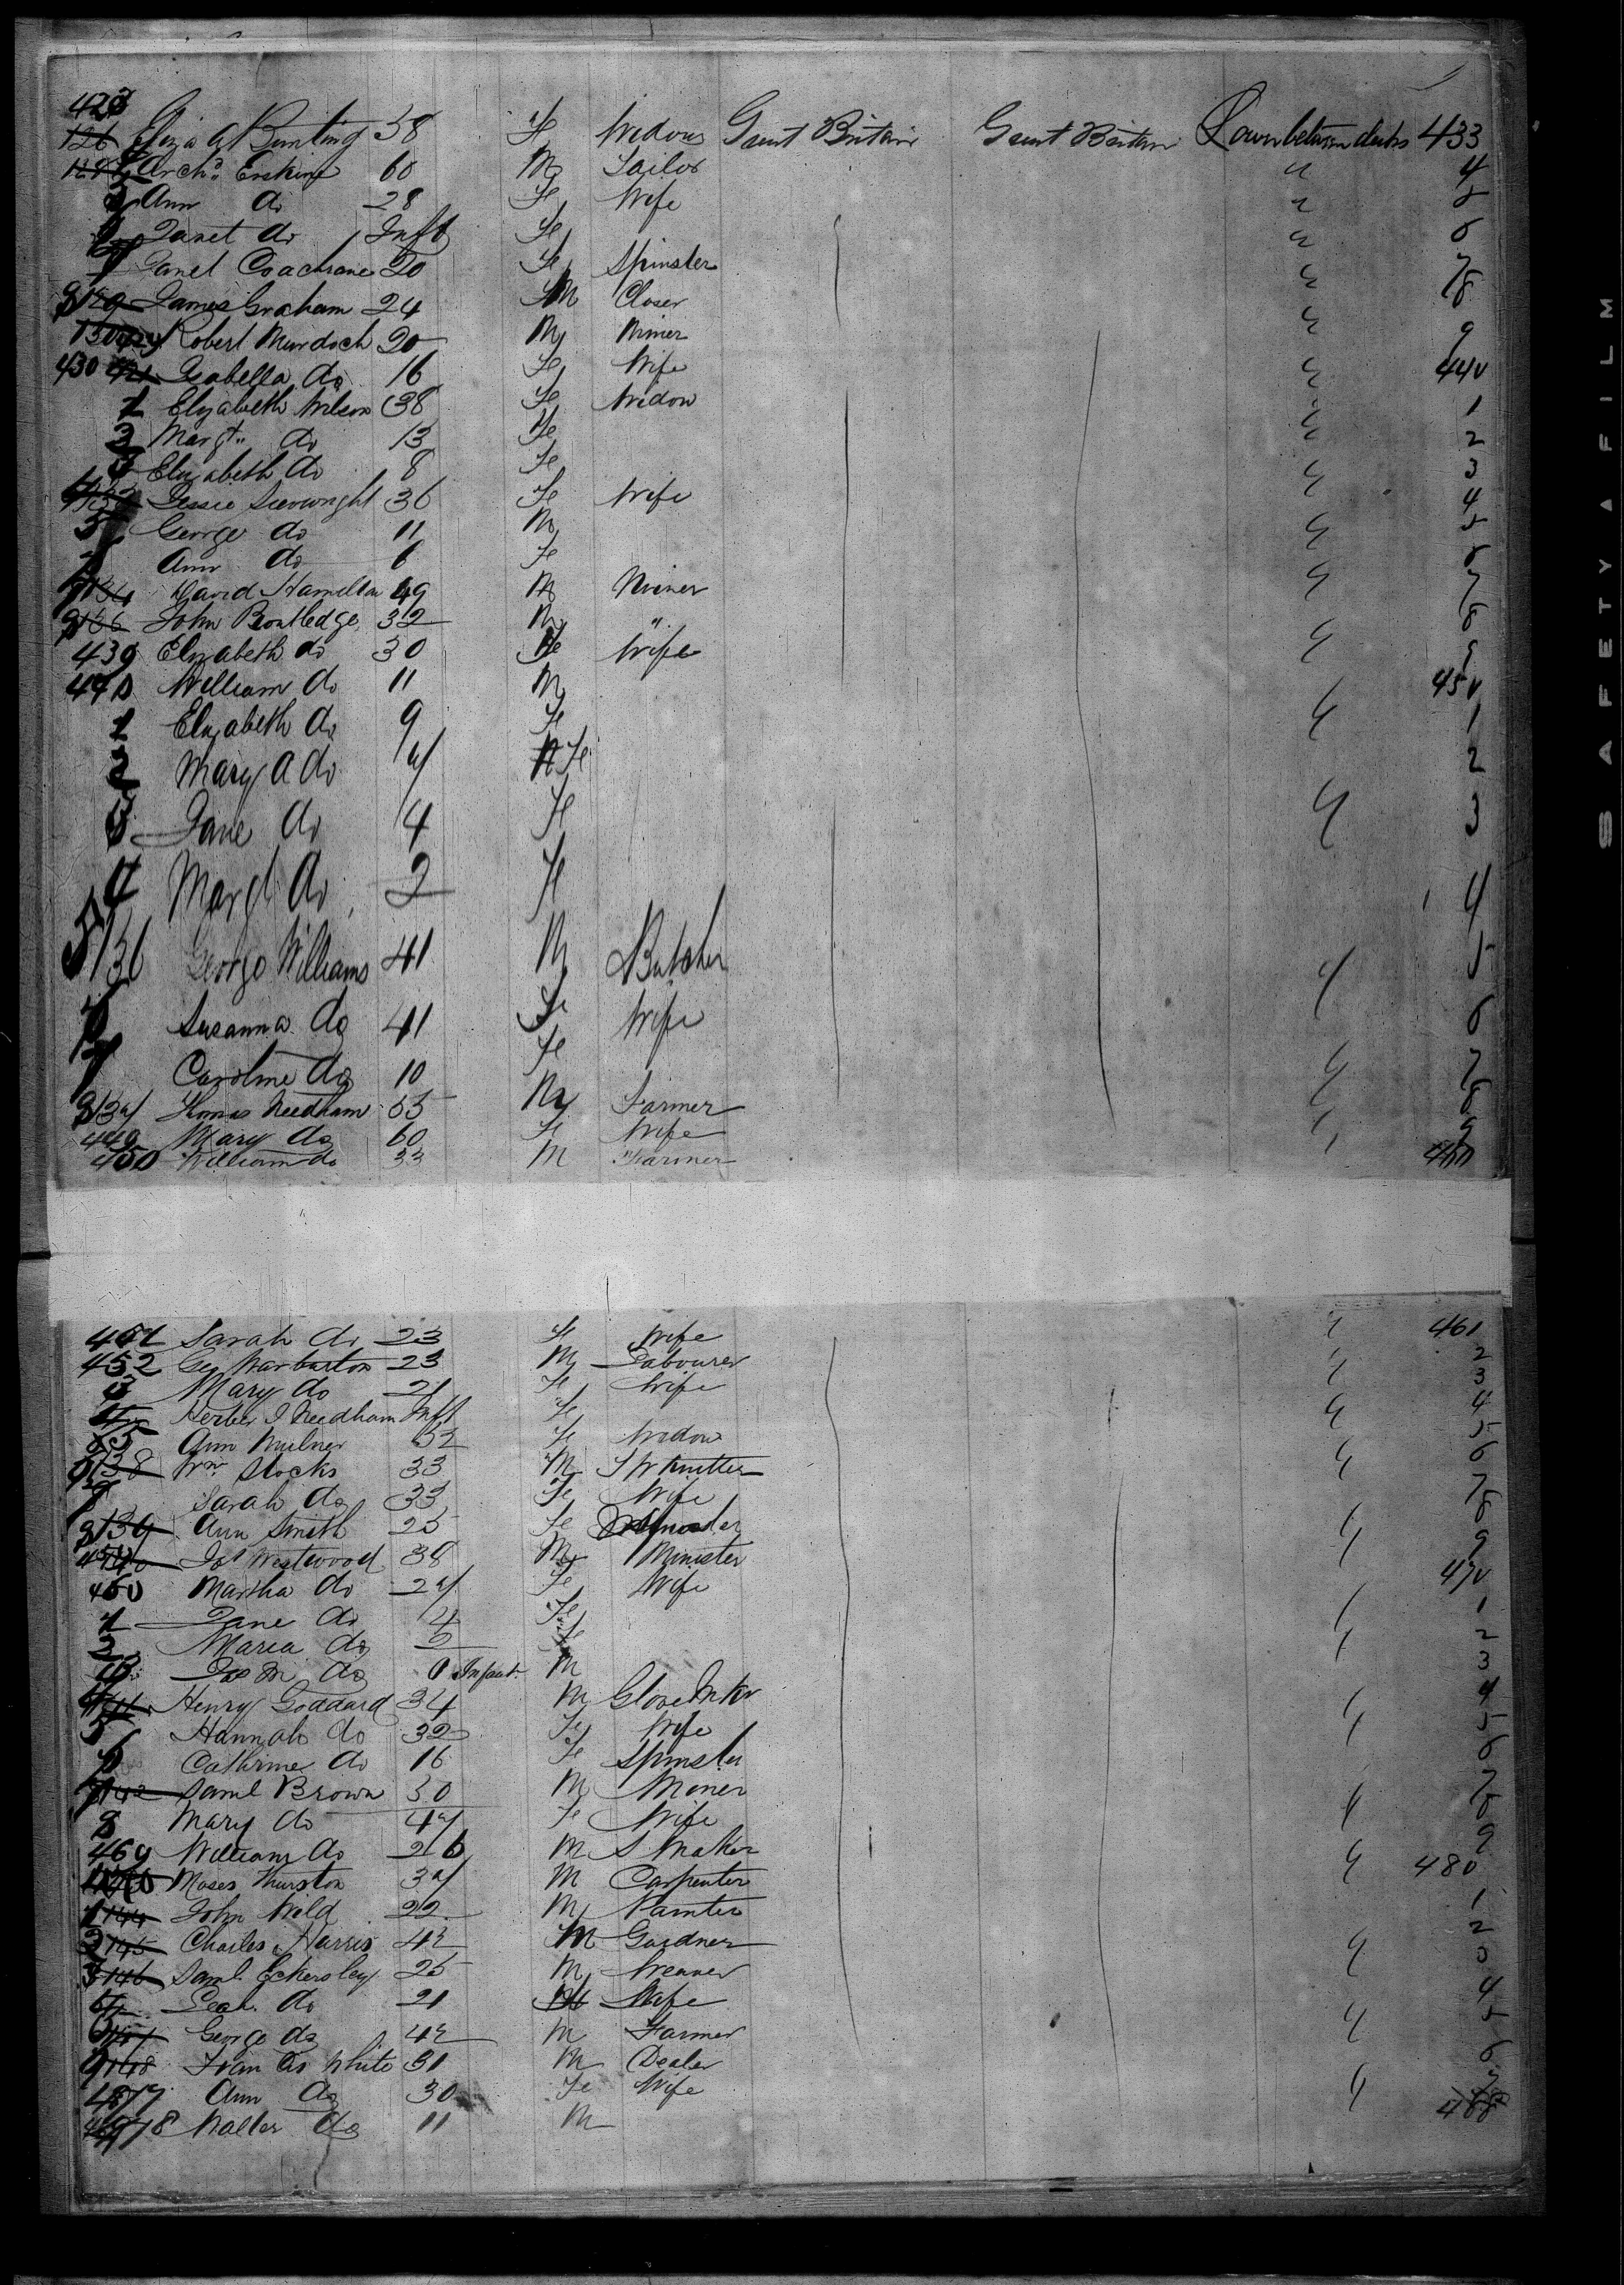 423
126 Eliza A Bunting 38 Fe Widow Great Britain Great Britain Lower between decks 433
Archd. Erskine 60 M Tailor " 4
5 Ann do 28 Fe Wife " 5
Janet do Inft Fe " 6
Janet Coachrane 20 Fe Spinster " 7
8 129 James Graham 24 M Closer " 8
130 429 Robert Murdoch 20 M Miner " 9
430 Isabella do 16 Fe Wife " 440
1 Elizabeth Wilson 38 Fe Widow " 1
2 Margt. do 13 Fe " 2
3 Elizabeth do 8 Fe " 3
4 132 Jessie Sievwright 36 Fe Wife 4
5 George do 11 M " 5
Ann do 6 Fe 6
7 134 David Hamilton 49 M Miner " 7
8 135 John Routledge 32 M " 8
439 Elizabeth do 30 Fe Wife " 9
440 William do 11 M 450
1 Elizabeth do 9 Fe " 1
2 Mary A do 7 Fe 2
3 Jane do 4 Fe " 3
4 Margt do 2 Fe 4
5 136 George Williams 41 M Butcher " 5
6 Susanna do 41 Fe Wife 6
7 Caroline do 10 Fe " 7
8 137 Thomas Needham 65 M Farmer " 8
449 Mary do 60 Fe Wife " 9
450 William do 33 M Farmer 460
451 Sarah do 23 Fe Wife " 461
452 Geo Warburton 23 M Labourer " 2
3 Mary do 21 Fe Wife " 3
4 Herbert J Needham Inft Fe " 4
5 Ann Milner 52 Fe Widow 5
6 138 Wm. Stocks 33 M F W Knitter " 6
7 Sarah do 33 Fe Wife 7
8 139 Ann Smith 25 Fe Spinster " 8
459 140 Jos Westwood 38 M Minister " 9
460 Martha do 27 Fe Wife 470
1 Jane do 4 Fe " 1
2 Maria do 2 Fe " 2
3 Jos M do 0 Infant M 3
4 141 Henry Goddard 34 M Glove Mkr " 4
5 Hannah do 32 Fe Wife " 5
6 Cathrine do 16 Fe Spinster 6
7 142 Saml Brown 50 M Miner " 7
8 Mary do 47 Fe Wife " 8
469 William do 26 M S Maker 9
Moses Thurston 37 M Carpenter " 480
1 144 John Wild 22 M Painter 1
2 145 Charles Harris 42 M Gardner 2
3 146 Saml. Eckersley 25 M Weaver " 3
4 Leah do 21 Wife 4
5 147 George do 42 M Farmer " 5
148 Francis White 31 M Dealer 6
477 Ann do 30 Fe Wife " 7
478 Walter do 11 M 488
SAFETY A FILM